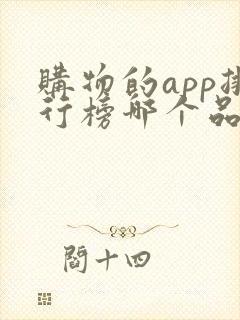 購物的app排
行榜哪个品
閻十四